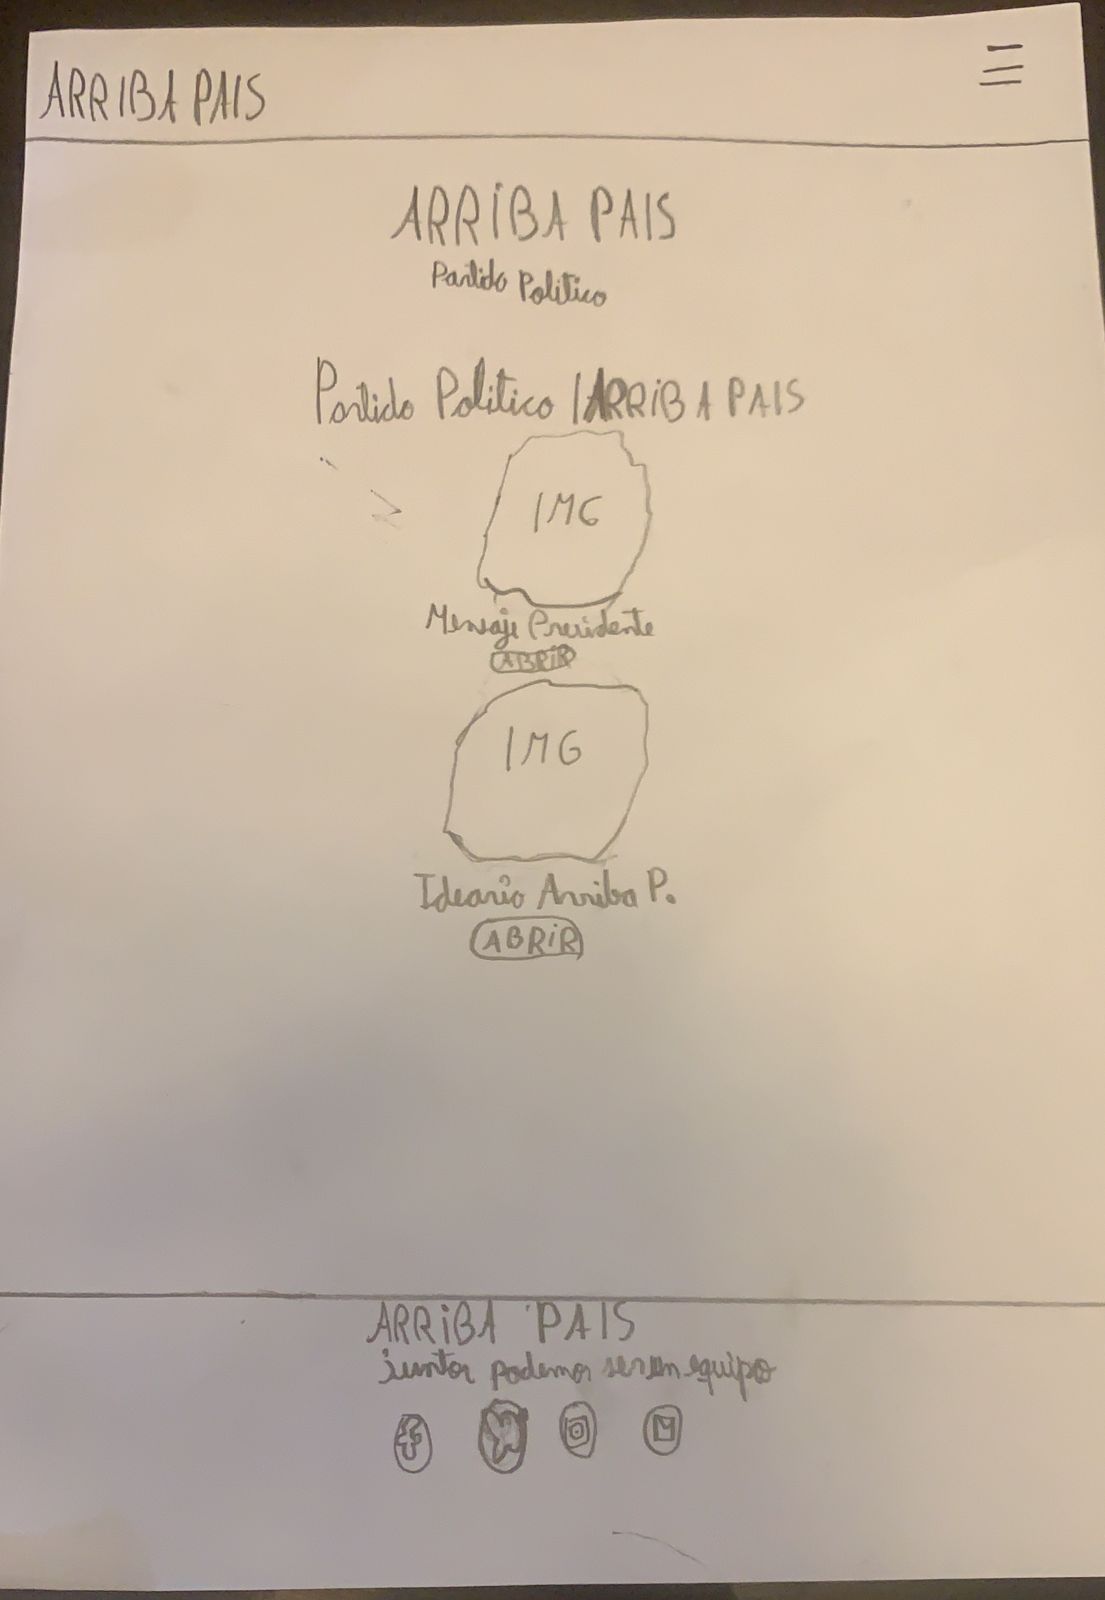 ARRIBA PAIS
ARRIBA PAIS
Partido Politico
Partido Politico | ARRIBA PAIS
IMG
Mensaje Presidente
ABRIR
IMG
Ideario Arriba P.
ABRIR
ARRIBA PAIS
juntos podemos ser un equipo